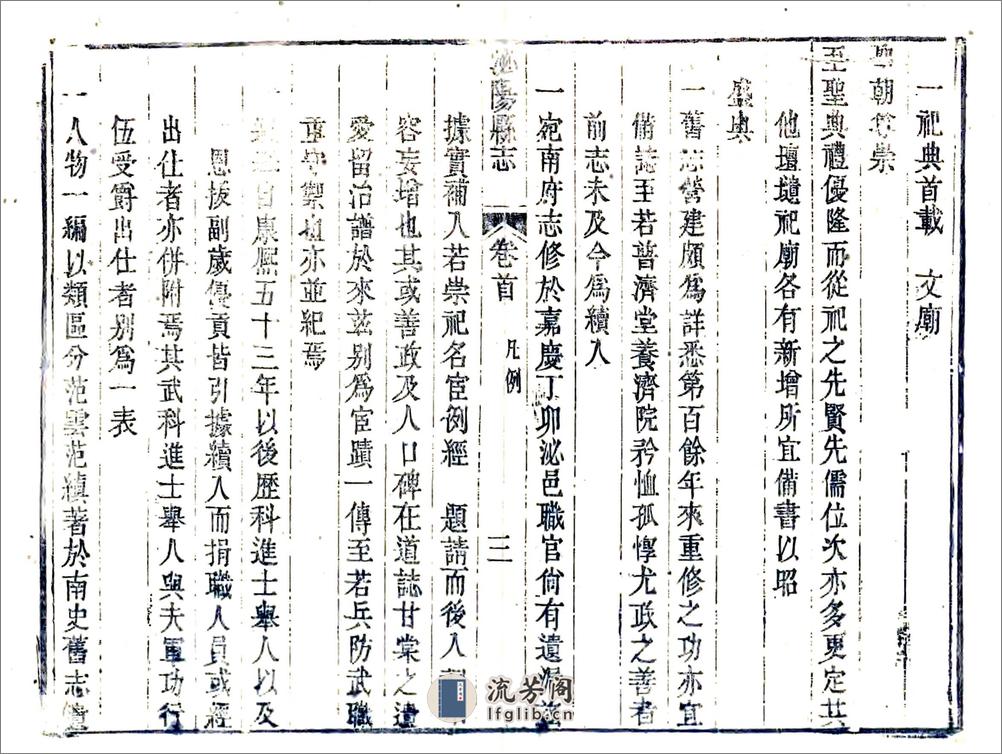 一祀典首載　文廟
聖朝尊崇
至聖典禮優隆而從祀之先賢先儒位次亦多更定其
他壇壝祀廟各有新增所宜備書以昭
盛典
一舊志營建頗為詳悉第百餘年來重修之功亦宜
備誌至若普濟堂養濟院矜恤孤惸尤政之善者
前志未及今為續入
一宛南府志修於嘉慶丁卯泌邑職官尙有遺漏茲
泌陽縣志
卷首
凡例
三
據實補入若崇祀名宦例經　題請而後入
容妄增也其或善政及人口碑在道誌甘棠之遺
愛留治譜於來茲別為宦蹟一傳至若兵防武職
重守禦也亦並紀焉
自康熙五十三年以後歷科進士舉人以及
恩拔副歲優貢皆引據續入而捐職人員或經
出仕者亦併附焉其武科進士舉人與夫軍功行
伍受爵出仕者別為一表
一人物一編以類區分范雲范縝著於南史舊志僅
流芳阁
lfglib.cn